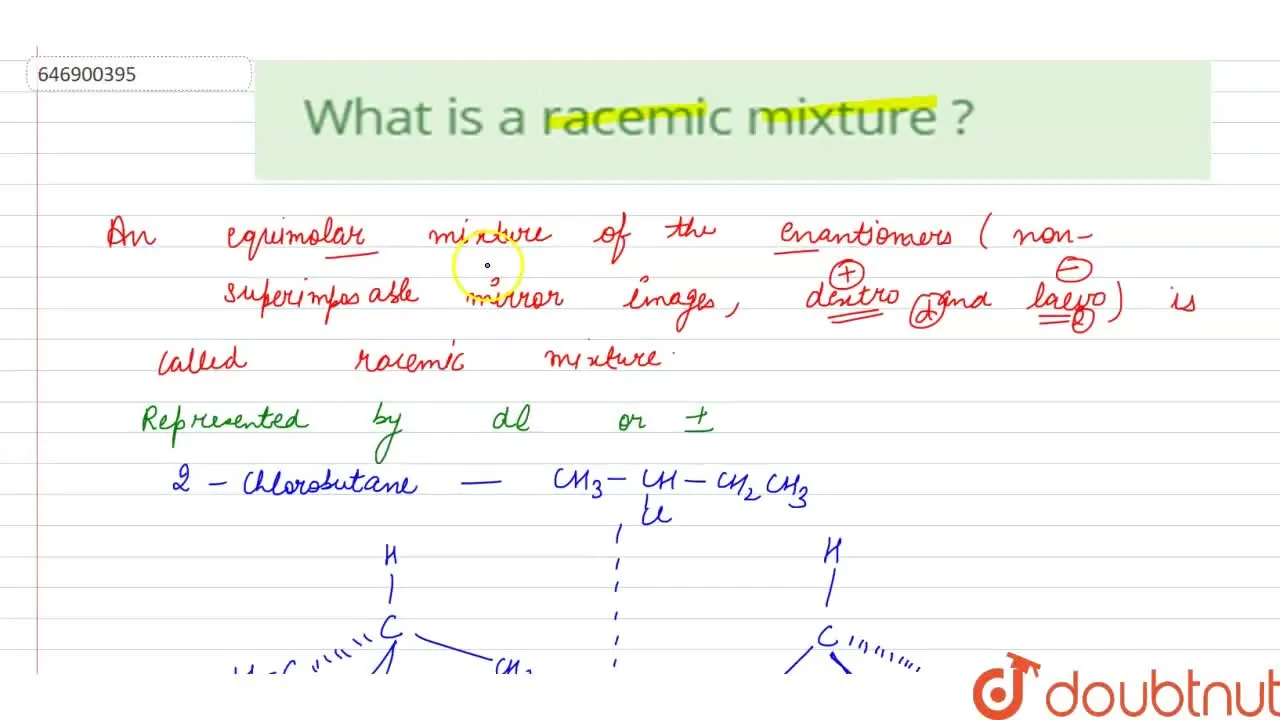 646900395
What is a racemic mixture ?
An equimolar mixture of the enantiomers ( non-
superimposable mirror images, dextro and laevo) is
+ -
d l
called racemic mixture.
Represented by dl or ±
2 - Chlorobutane — CH3 - CH - CH2 CH3
Cl
H H
C C
H3C CH3
doubtnut